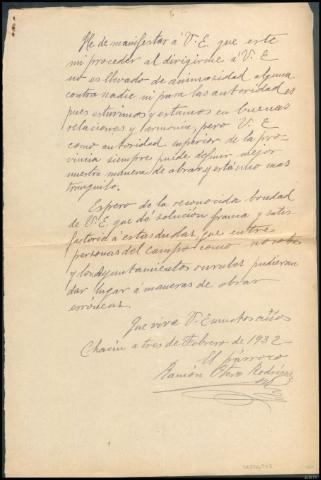 He de manifestar á V. E. que este
mi proceder al dirigirme á V. E
no es llevado de animosidad alguna
contra nadie ni para las autoridades
pues estuvimos y estamos en buenas
relaciones y harmonia, pero V. E
como autoridad superior de la pro-
vincia siempre puede definir mejor
nuestra manera de obrar y estándo mas
tranquilo.
Espero de la reconocida bondad
de V. E. que dé solución franca y satis-
factoria á estas dudas que entre
personas del campo como nosotros
y los Ayuntamientos rurales pudieran
dar lugar á maneras de obrar
erróneas.
Que viva V. E muchos años
Chacin a tres de Febrero de 1932
El párroco
Ramón Otero Rodríguez